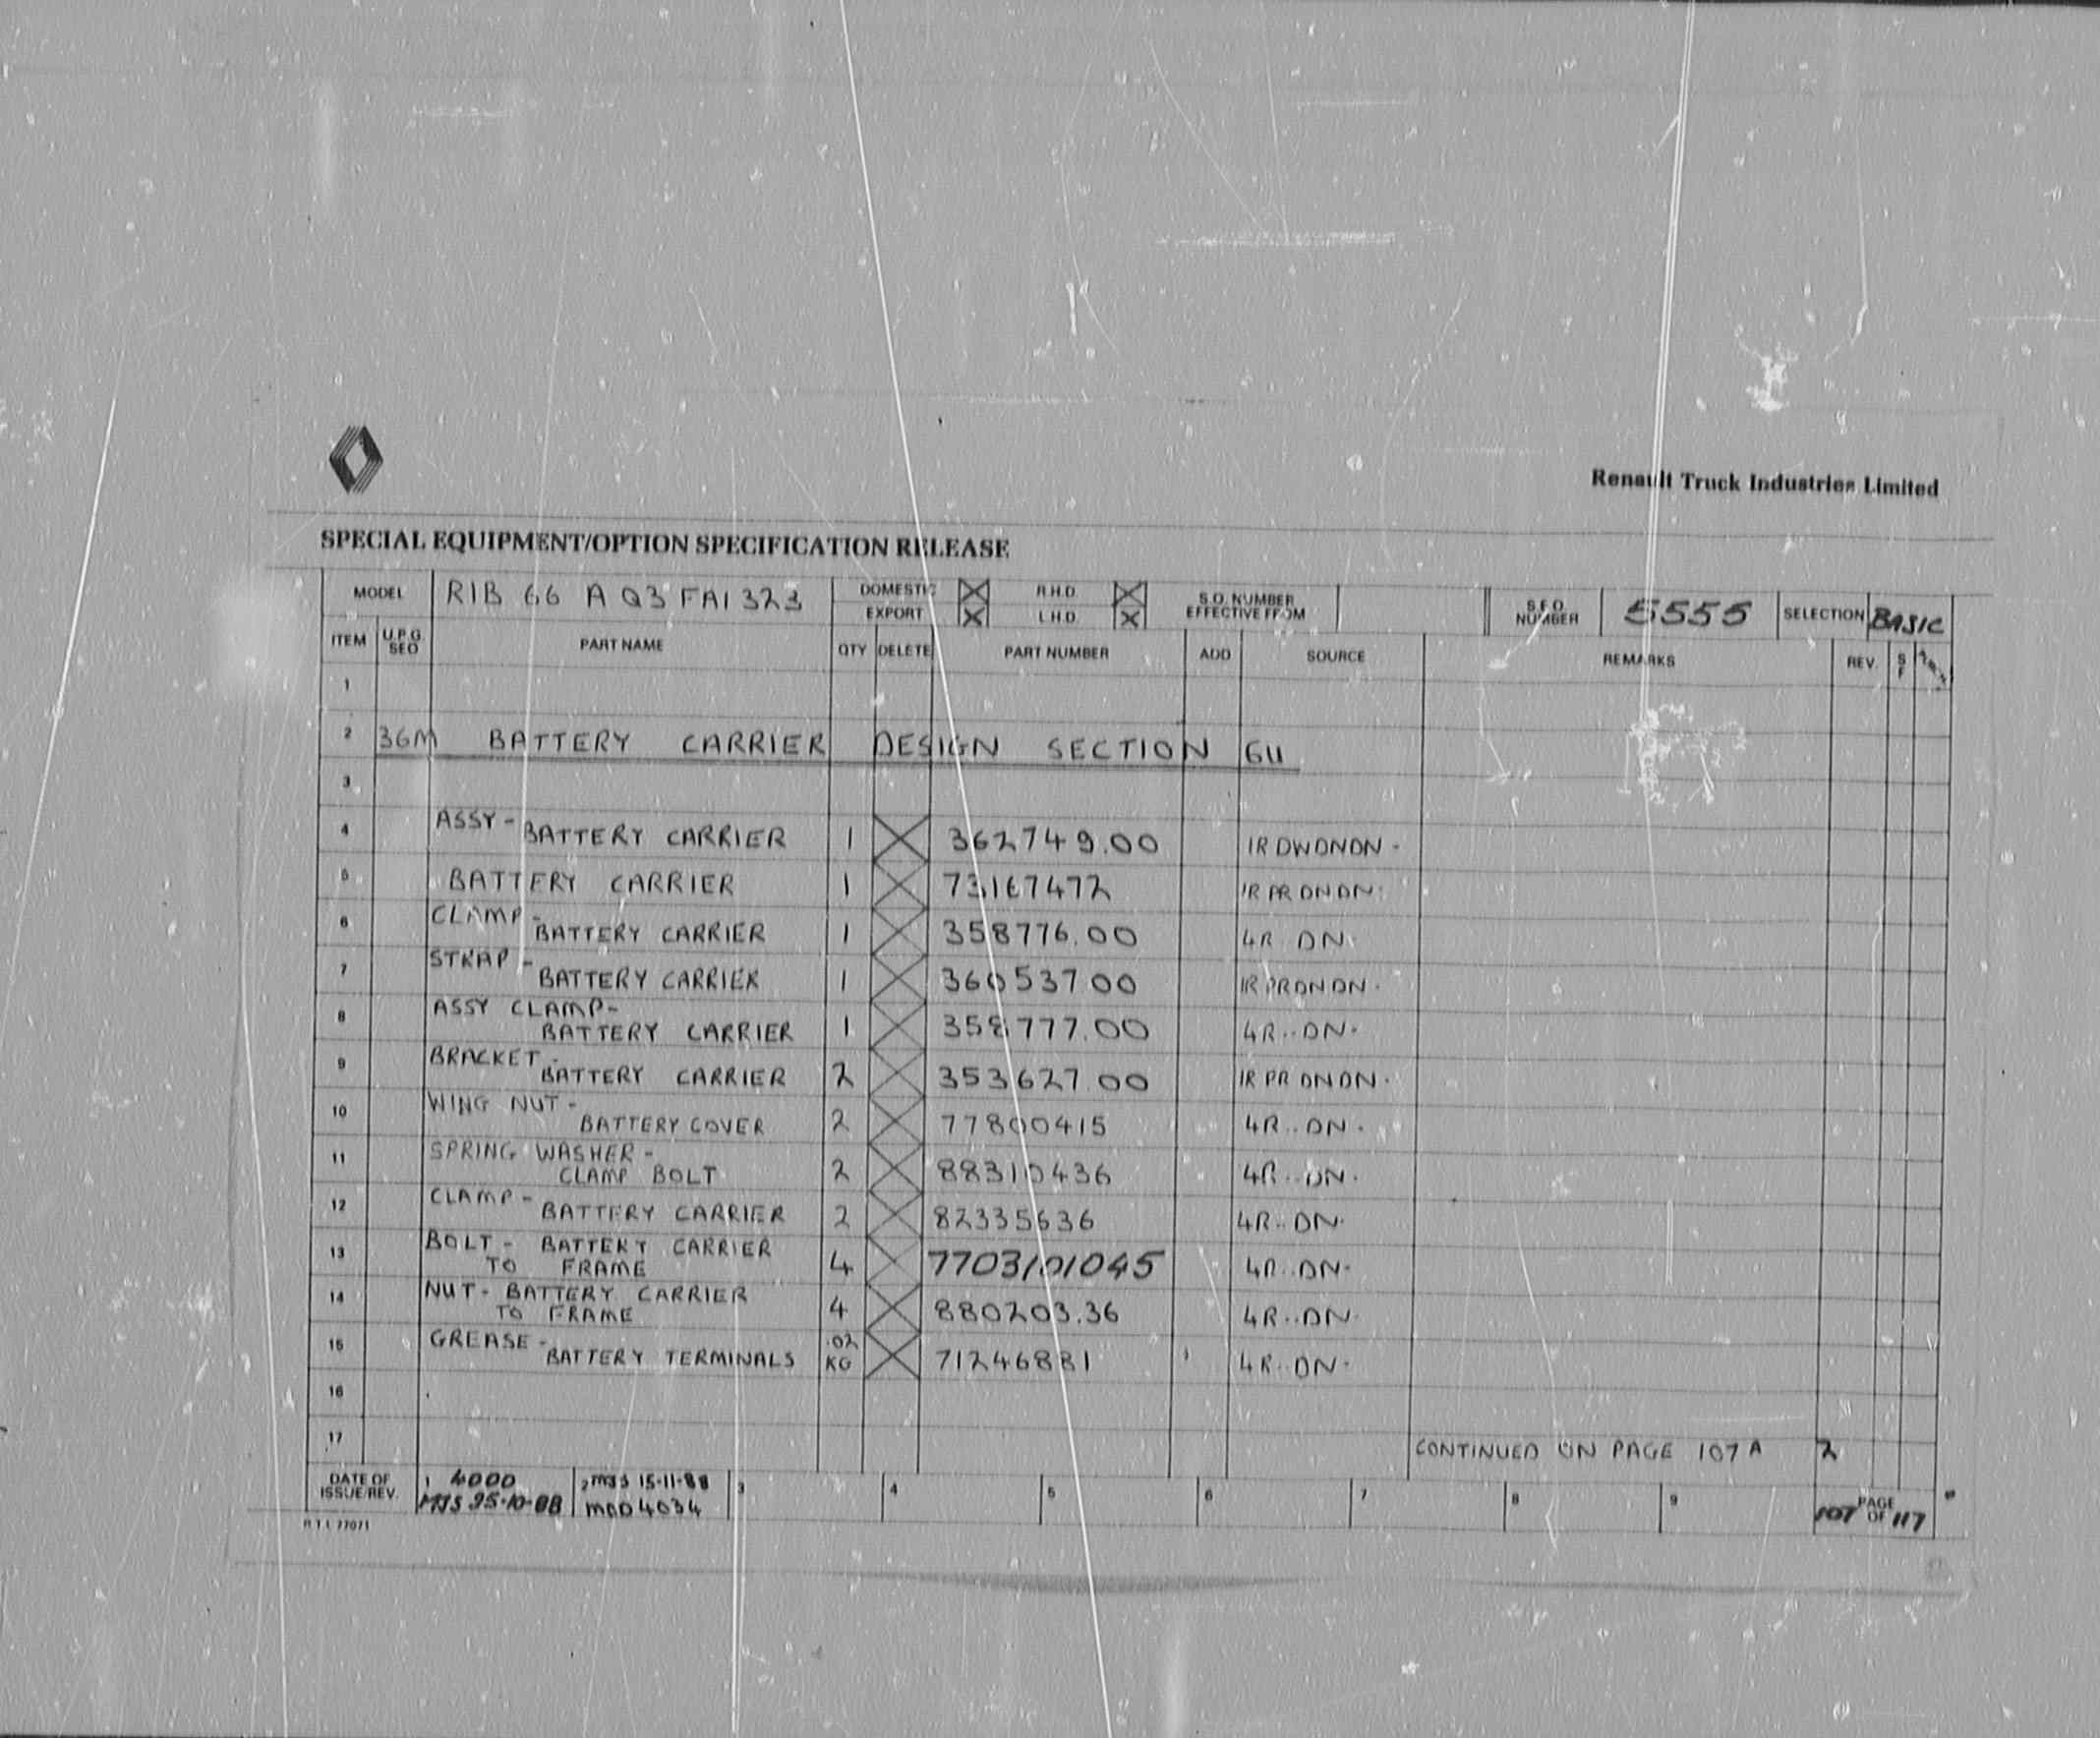 Renault Truck Industries Limited
SPECIAL EQUIPMENT/OPTION SPECIFICATION RELEASE
MODEL R1B 66 A Q3 FA1 323 DOMESTIC R.H.D. S.O. NUMBER EFFECTIVE FROM S.F.O. NUMBER 5555 SELECTION BASIC
EXPORT L.H.D.
ITEM U.P.G. SEQ PART NAME QTY DELETE PART NUMBER ADD SOURCE REMARKS REV. S F
1
2 36M BATTERY CARRIER DESIGN SECTION 6U
3
4 ASSY - BATTERY CARRIER 1 362749.00 1R DWONON -
5 BATTERY CARRIER 1 73167472 1R PR ONON
6 CLAMP - BATTERY CARRIER 1 358776.00 4R ON
7 STRAP - BATTERY CARRIER 1 360537 00 1R PRONON .
8 ASSY CLAMP - BATTERY CARRIER 1 358777.00 4R..ON.
9 BRACKET - BATTERY CARRIER 2 353627.00 1R PR ONON.
10 WING NUT - BATTERY COVER 2 77800415 4R..ON.
11 SPRING WASHER - CLAMP BOLT 2 88310436 4R..ON.
12 CLAMP - BATTERY CARRIER 2 82335636 4R..ON.
13 BOLT - BATTERY CARRIER TO FRAME 4 7703101045 4R..ON.
14 NUT - BATTERY CARRIER TO FRAME 4 880203.36 4R..ON.
15 GREASE - BATTERY TERMINALS .02 KG 71246881 4R..ON.
16
17 CONTINUED ON PAGE 107A 2
DATE OF ISSUE/REV. 1 4000 2 MJS 15-11-88 3 4 5 6 7 8 9 107 PAGE OF 117
MJS 25-10-88 MOD 4034
R T I 77071